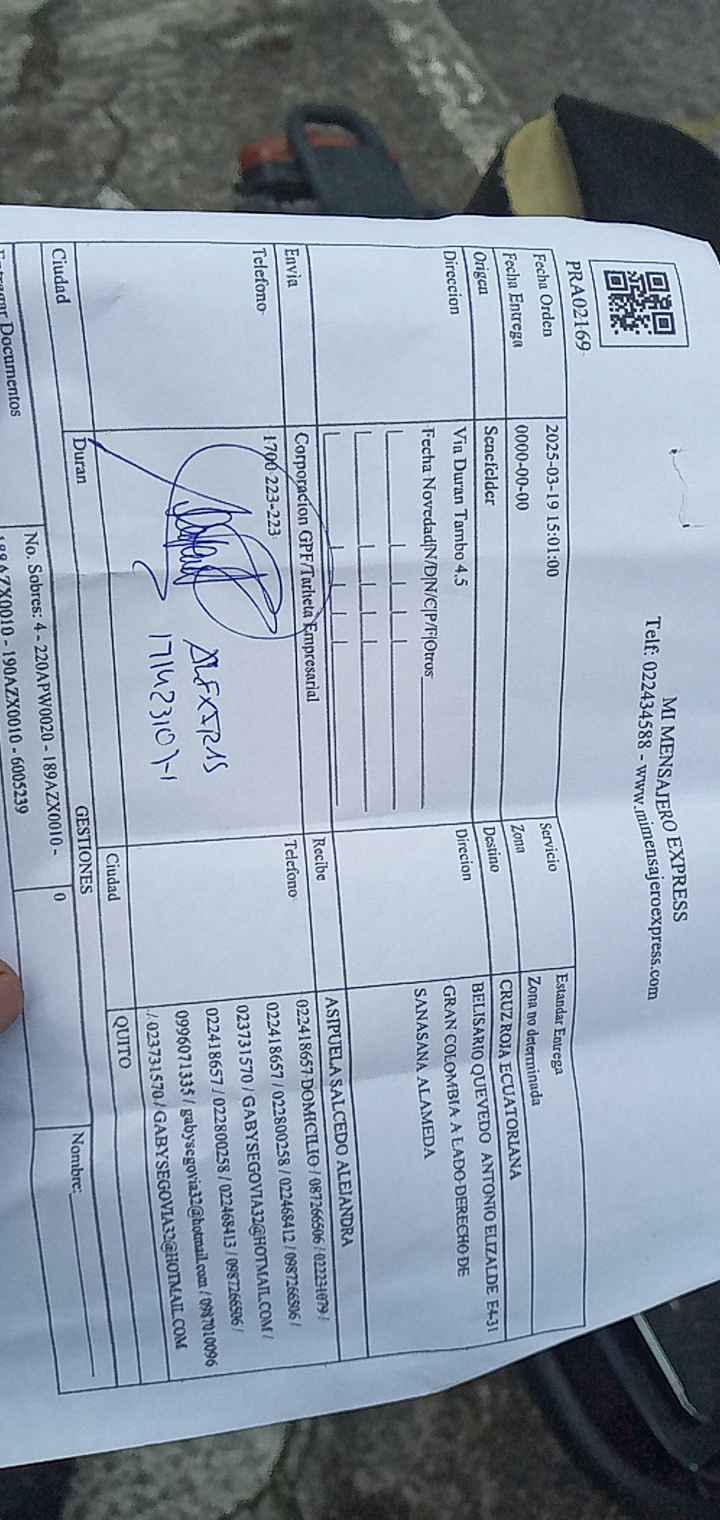 MI MENSAJERO EXPRESS
Telf: 022434588 - www.mimensajeroexpress.com
PRA02169
Fecha Orden 2025-03-19 15:01:00 Servicio Estandar Entrega
Fecha Entrega 0000-00-00 Zona Zona no determinada
Origen Senefelder Destino CRUZ ROJA ECUATORIANA
Direccion Via Duran Tambo 4.5 Direcion BELISARIO QUEVEDO ANTONIO ELIZALDE E4-31
GRAN COLOMBIA A LADO DERECHO DE
SANASANA ALAMEDA
Fecha Novedad|N/D|N/C|P/F|Otros
Envia Corporacion GPF/Tarheta Empresarial Recibe ASIPUELA SALCEDO ALEJANDRA
Telefono 1700-223-223 Telefono 022418657 DOMICILIO / 087266506 / 022231079 /
022418657 / 022800258 / 022468412 / 0987266506 /
023731570 / GABYSEGOVIA32@HOTMAIL.COM /
022418657 / 022800258 / 022468413 / 0987266506 /
0996071335 / gabysegovia32@hotmail.com / 0987010096
/ 023731570 / GABYSEGOVIA32@HOTMAIL.COM
Ciudad Duran Ciudad QUITO
GESTIONES
Entregar Documentos No. Sobres: 4 - 220APW0020 - 189AZX0010 - 0 Nombre:
189AZX0010 - 190AZX0010 - 6005239